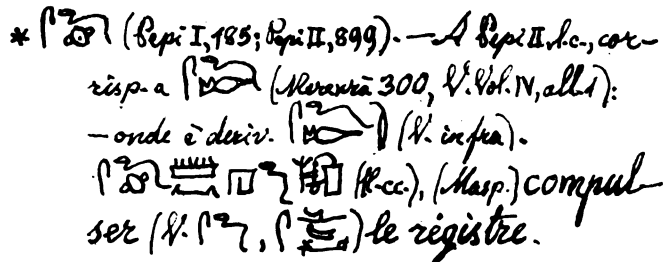 * (Pepi I, 185; Pepi II, 899). — A Pepi II, l.c., cor-
risp. a (Merenrā 300, V. Vol. IV, all. 1):
— onde è deriv. (V. infra).
(ll. cc.), (Masp.) compul-
ser (V. , ) le régistre.